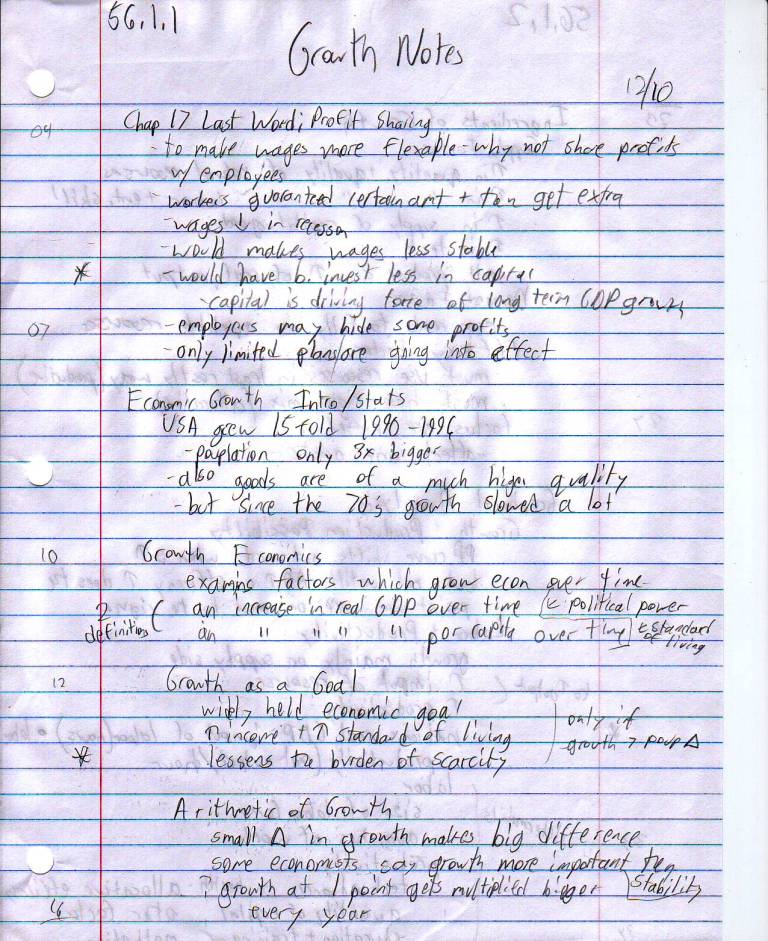 56.1.1
Growth Notes
12/10
04 Chap 17 Last Word; Profit Sharing
- to make wages more flexable - why not share profits
w/ employees
- workers guaranteed certain amt + then get extra
- wages ↓ in recesson
- would makes wages less stable
* - would have b. invest less in capital
- capital is driving force of long term GDP growth
07 - employers may hide some profits
- only limited plans are going into effect
Economic Growth Intro/Stats
USA grew 15 fold 1990-1996
- pouplation only 3x bigger
- also goods are of a much higer quality
- but since the 70's growth slowed a lot
10 Growth Economics
examins factors which grow econ over time
2 ( an increase in real GDP over time ← political power
definitions an " " " " per capita over time ← standard
of living
12 Growth as a Goal
widly held economic goal
↑ income + ↑ standard of living only if
growth > poup Δ
* lessens the burden of scarcity
Arithmetic of Growth
small Δ in growth makes big difference
some economists say growth more important then
stability
? growth at 1 point gets multiplied bigger
every year